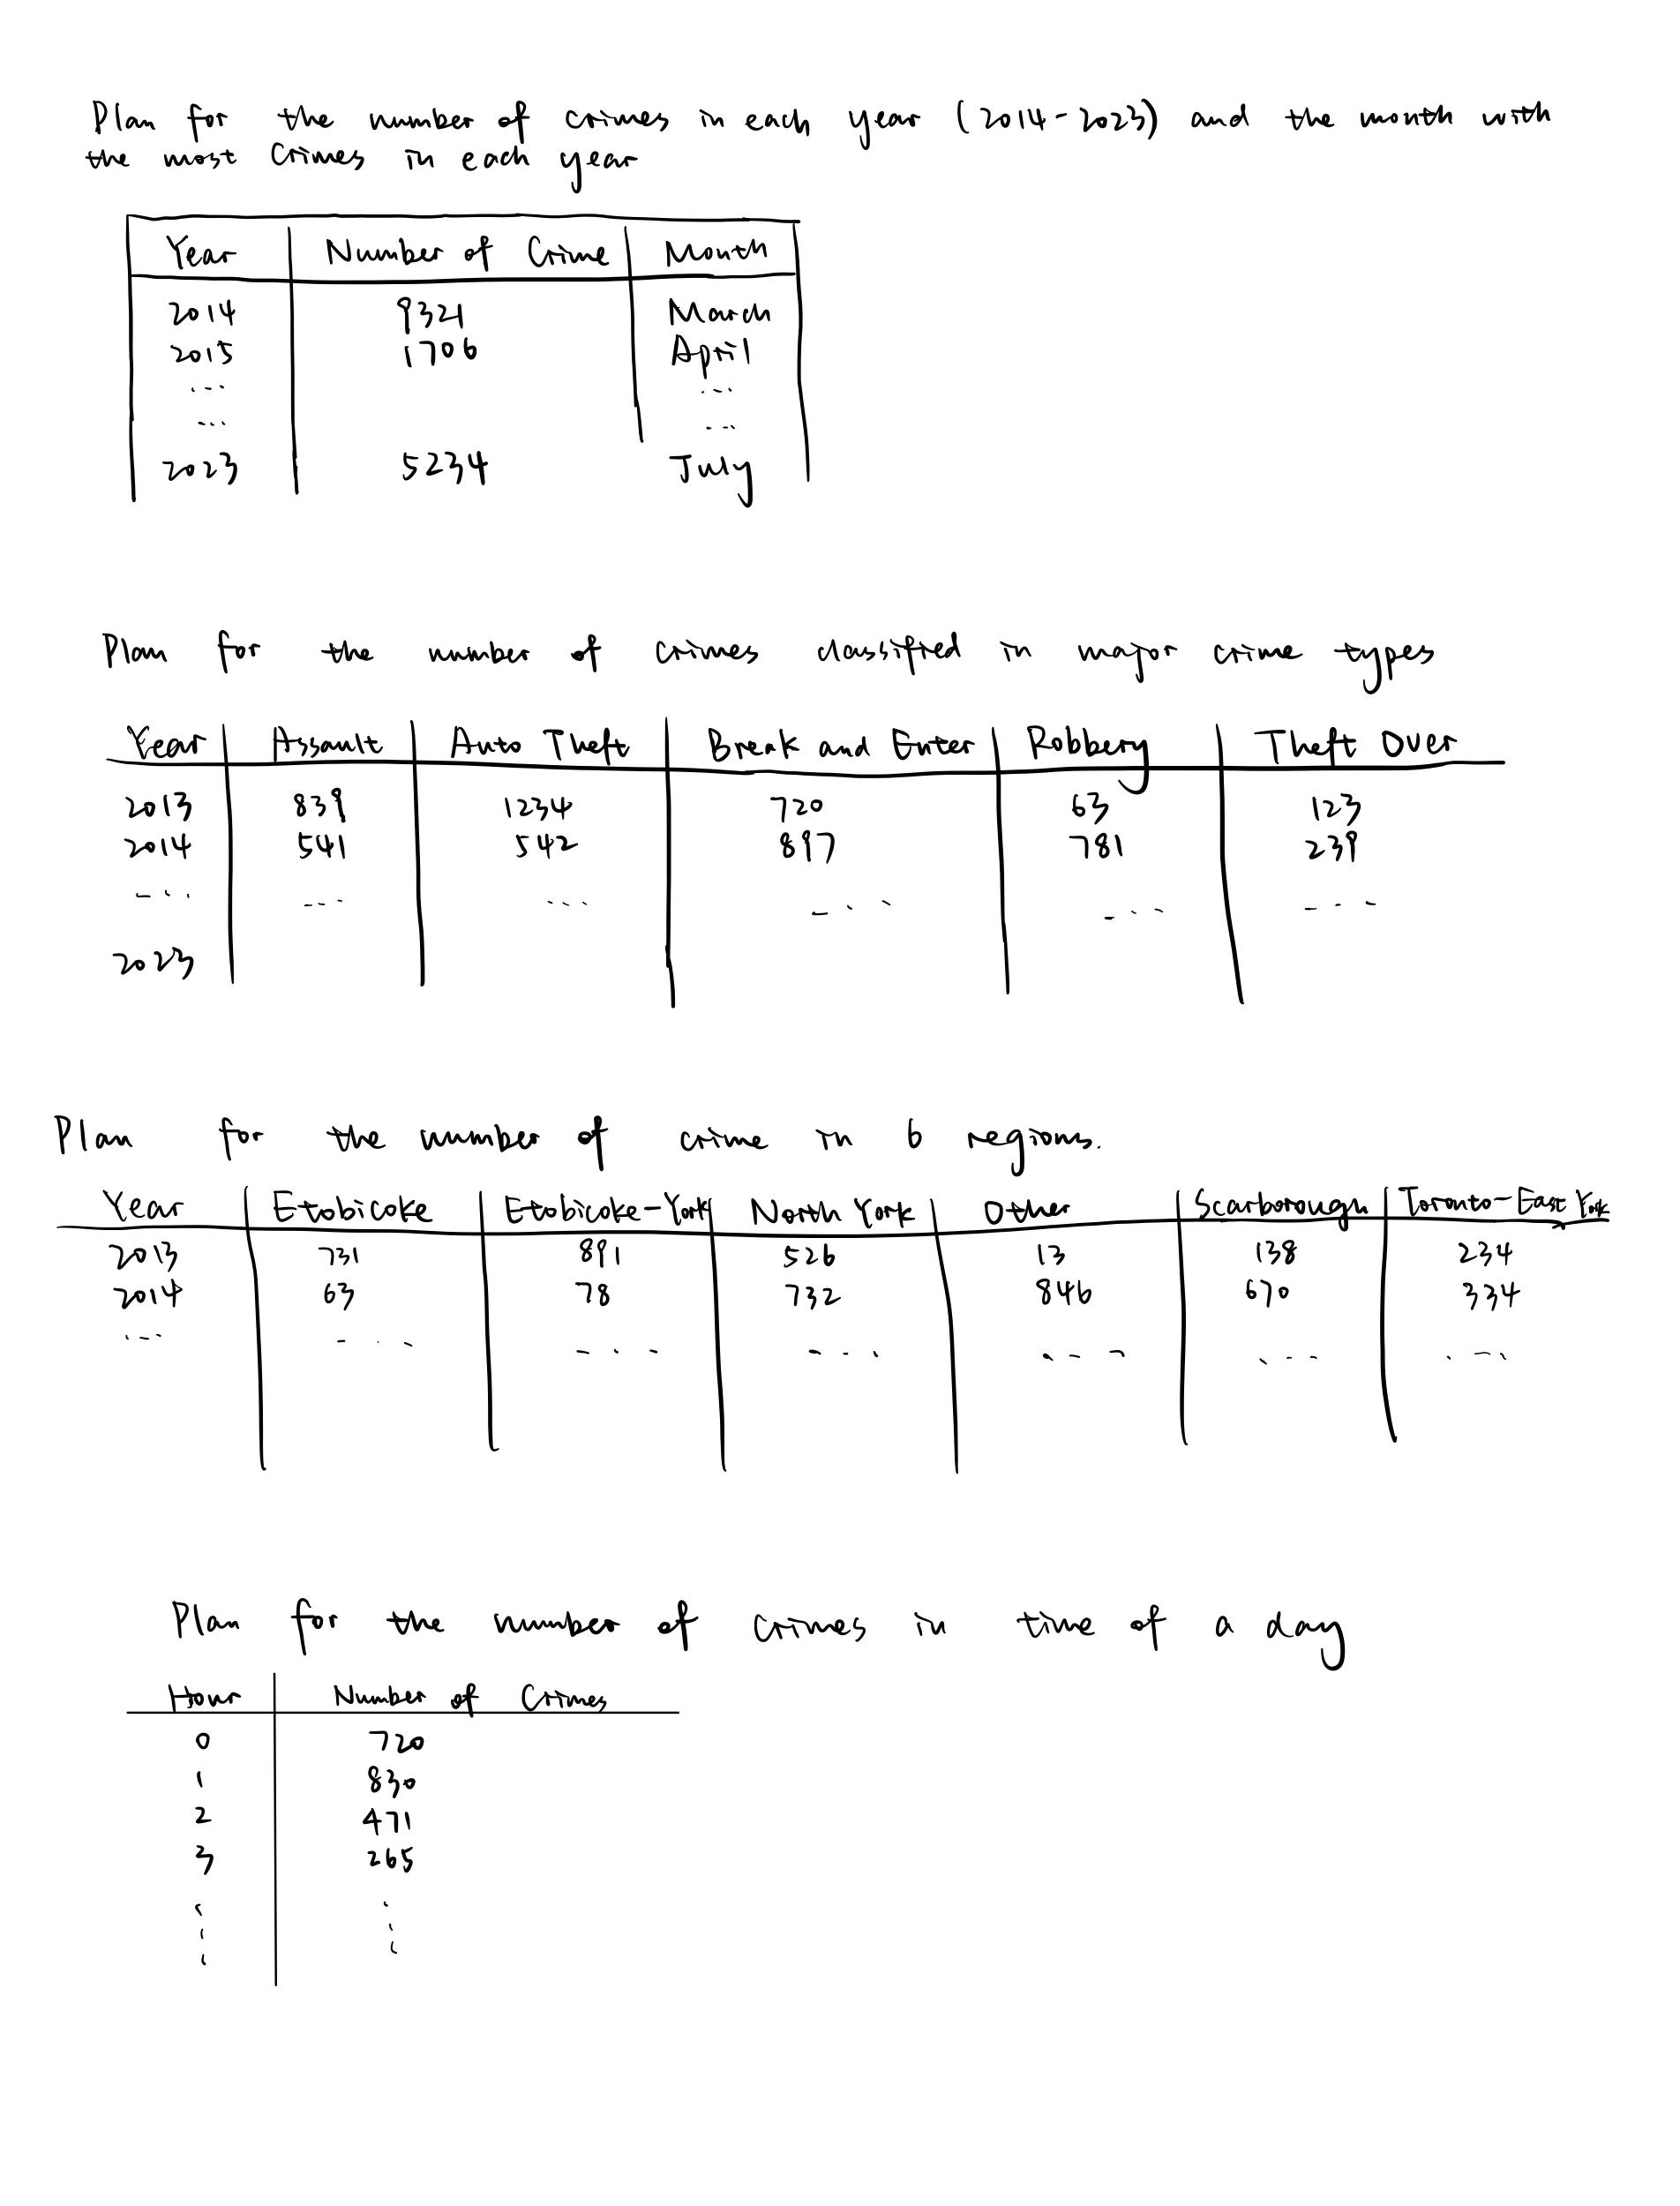 Plan for the number of crimes in each year (2014-2023) and the month with
the most crimes in each year
Year Number of Crime Month
2014 9321 March
2015 1706 April
... ...
... ...
2023 5234 July
Plan for the number of crimes classified in major crime types
Year Assault Auto Theft Break and Enter Robbery Theft Over
2013 839 1234 720 63 123
2014 541 542 897 781 239
... ... ... ... ... ...
2023
Plan for the number of crime in 6 regions.
Year Etobicoke Etobicoke-York North York Other Scarborough Toronto-East York
2013 731 891 526 13 138 234
2014 63 78 732 846 670 334
... ... ... ... ... ... ...
Plan for the number of crimes in time of a day
Hour Number of Crimes
0 720
1 830
2 471
3 265
. .
. .
. .